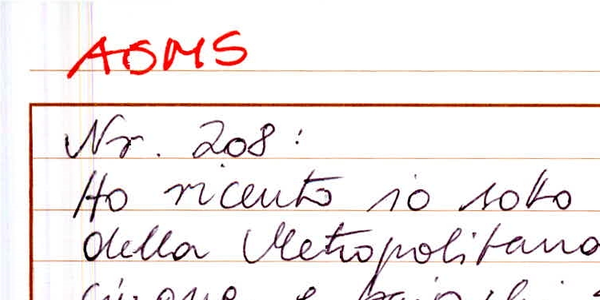 AOMS
Nr. 208:
Ho ricevuto io sotto
della Metropolitana
e